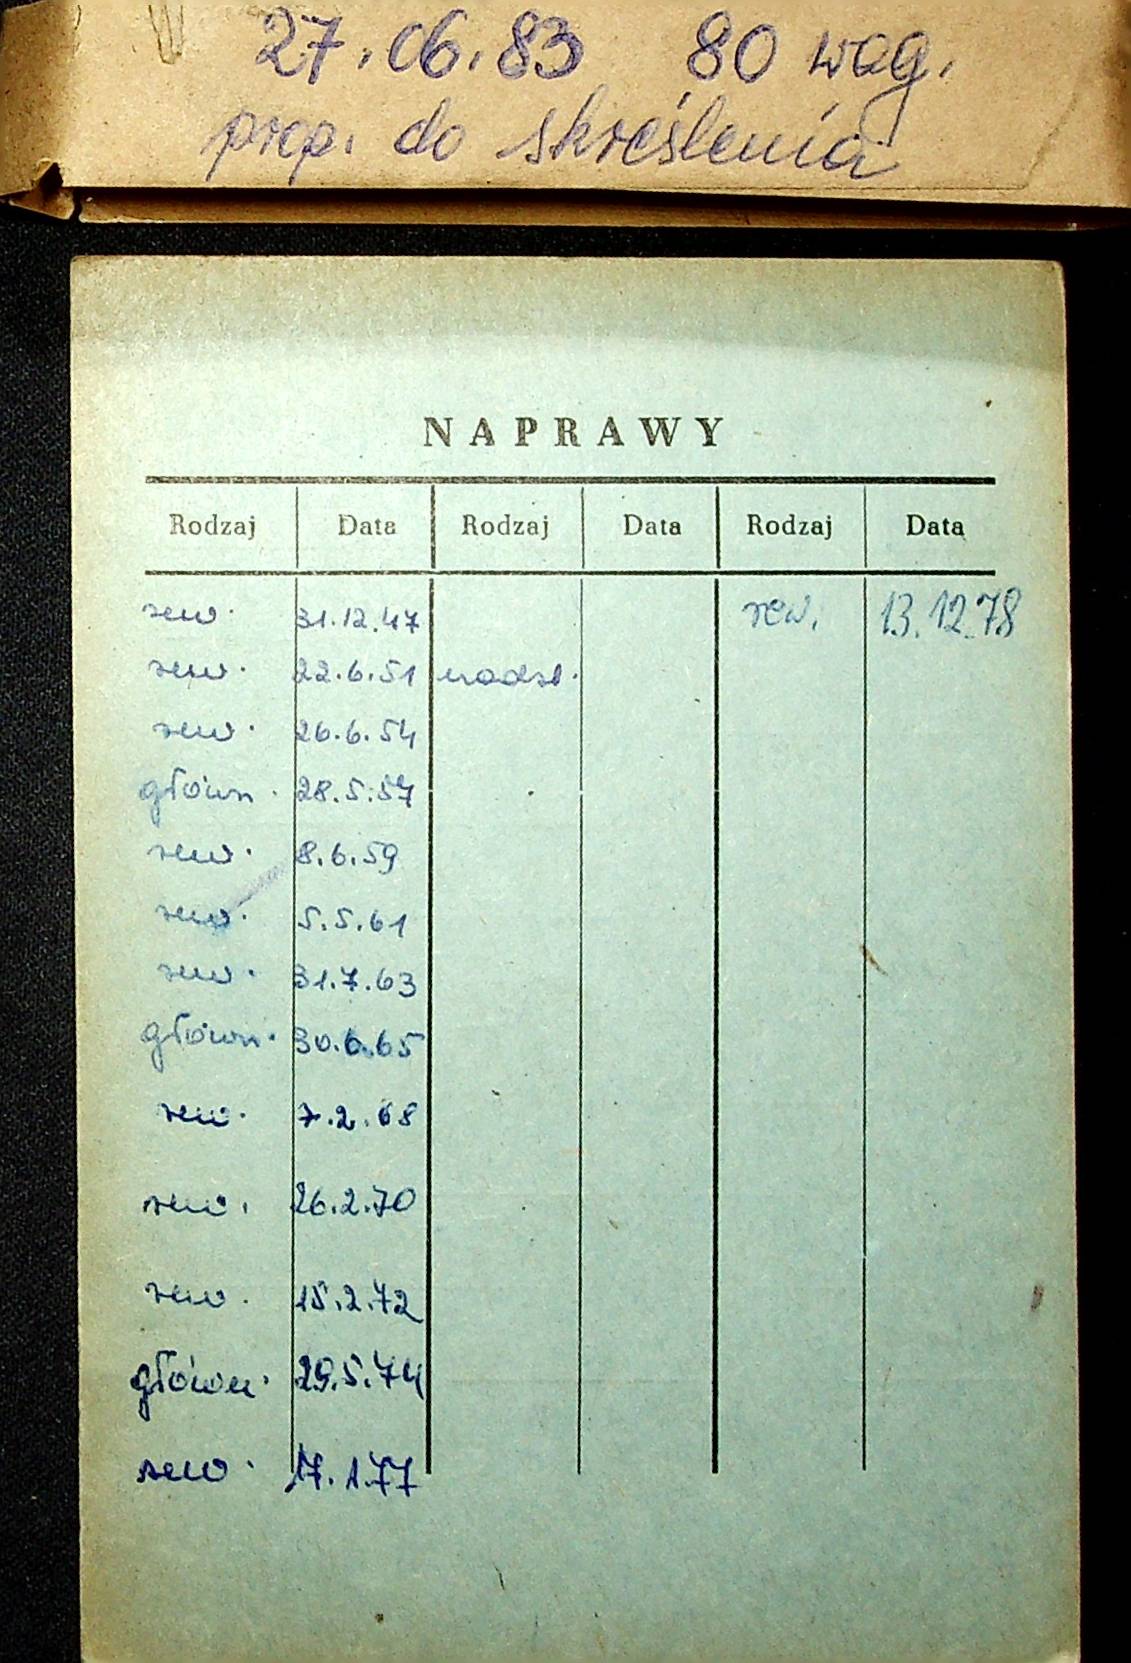 27.06.83 80 wag.
prop. do skreślenia
NAPRAWY
Rodzaj Data Rodzaj Data Rodzaj Data
rew. 31.12.47 rew. 13.12.78
rew. 22.6.51 nadzw.
rew. 26.6.54
główn. 28.5.57
rew. 8.6.59
rew. 5.5.61
rew. 31.7.63
główn. 30.6.65
rew. 7.2.68
rew. 26.2.70
rew. 15.2.72
główn. 29.5.74
rew. 17.1.77